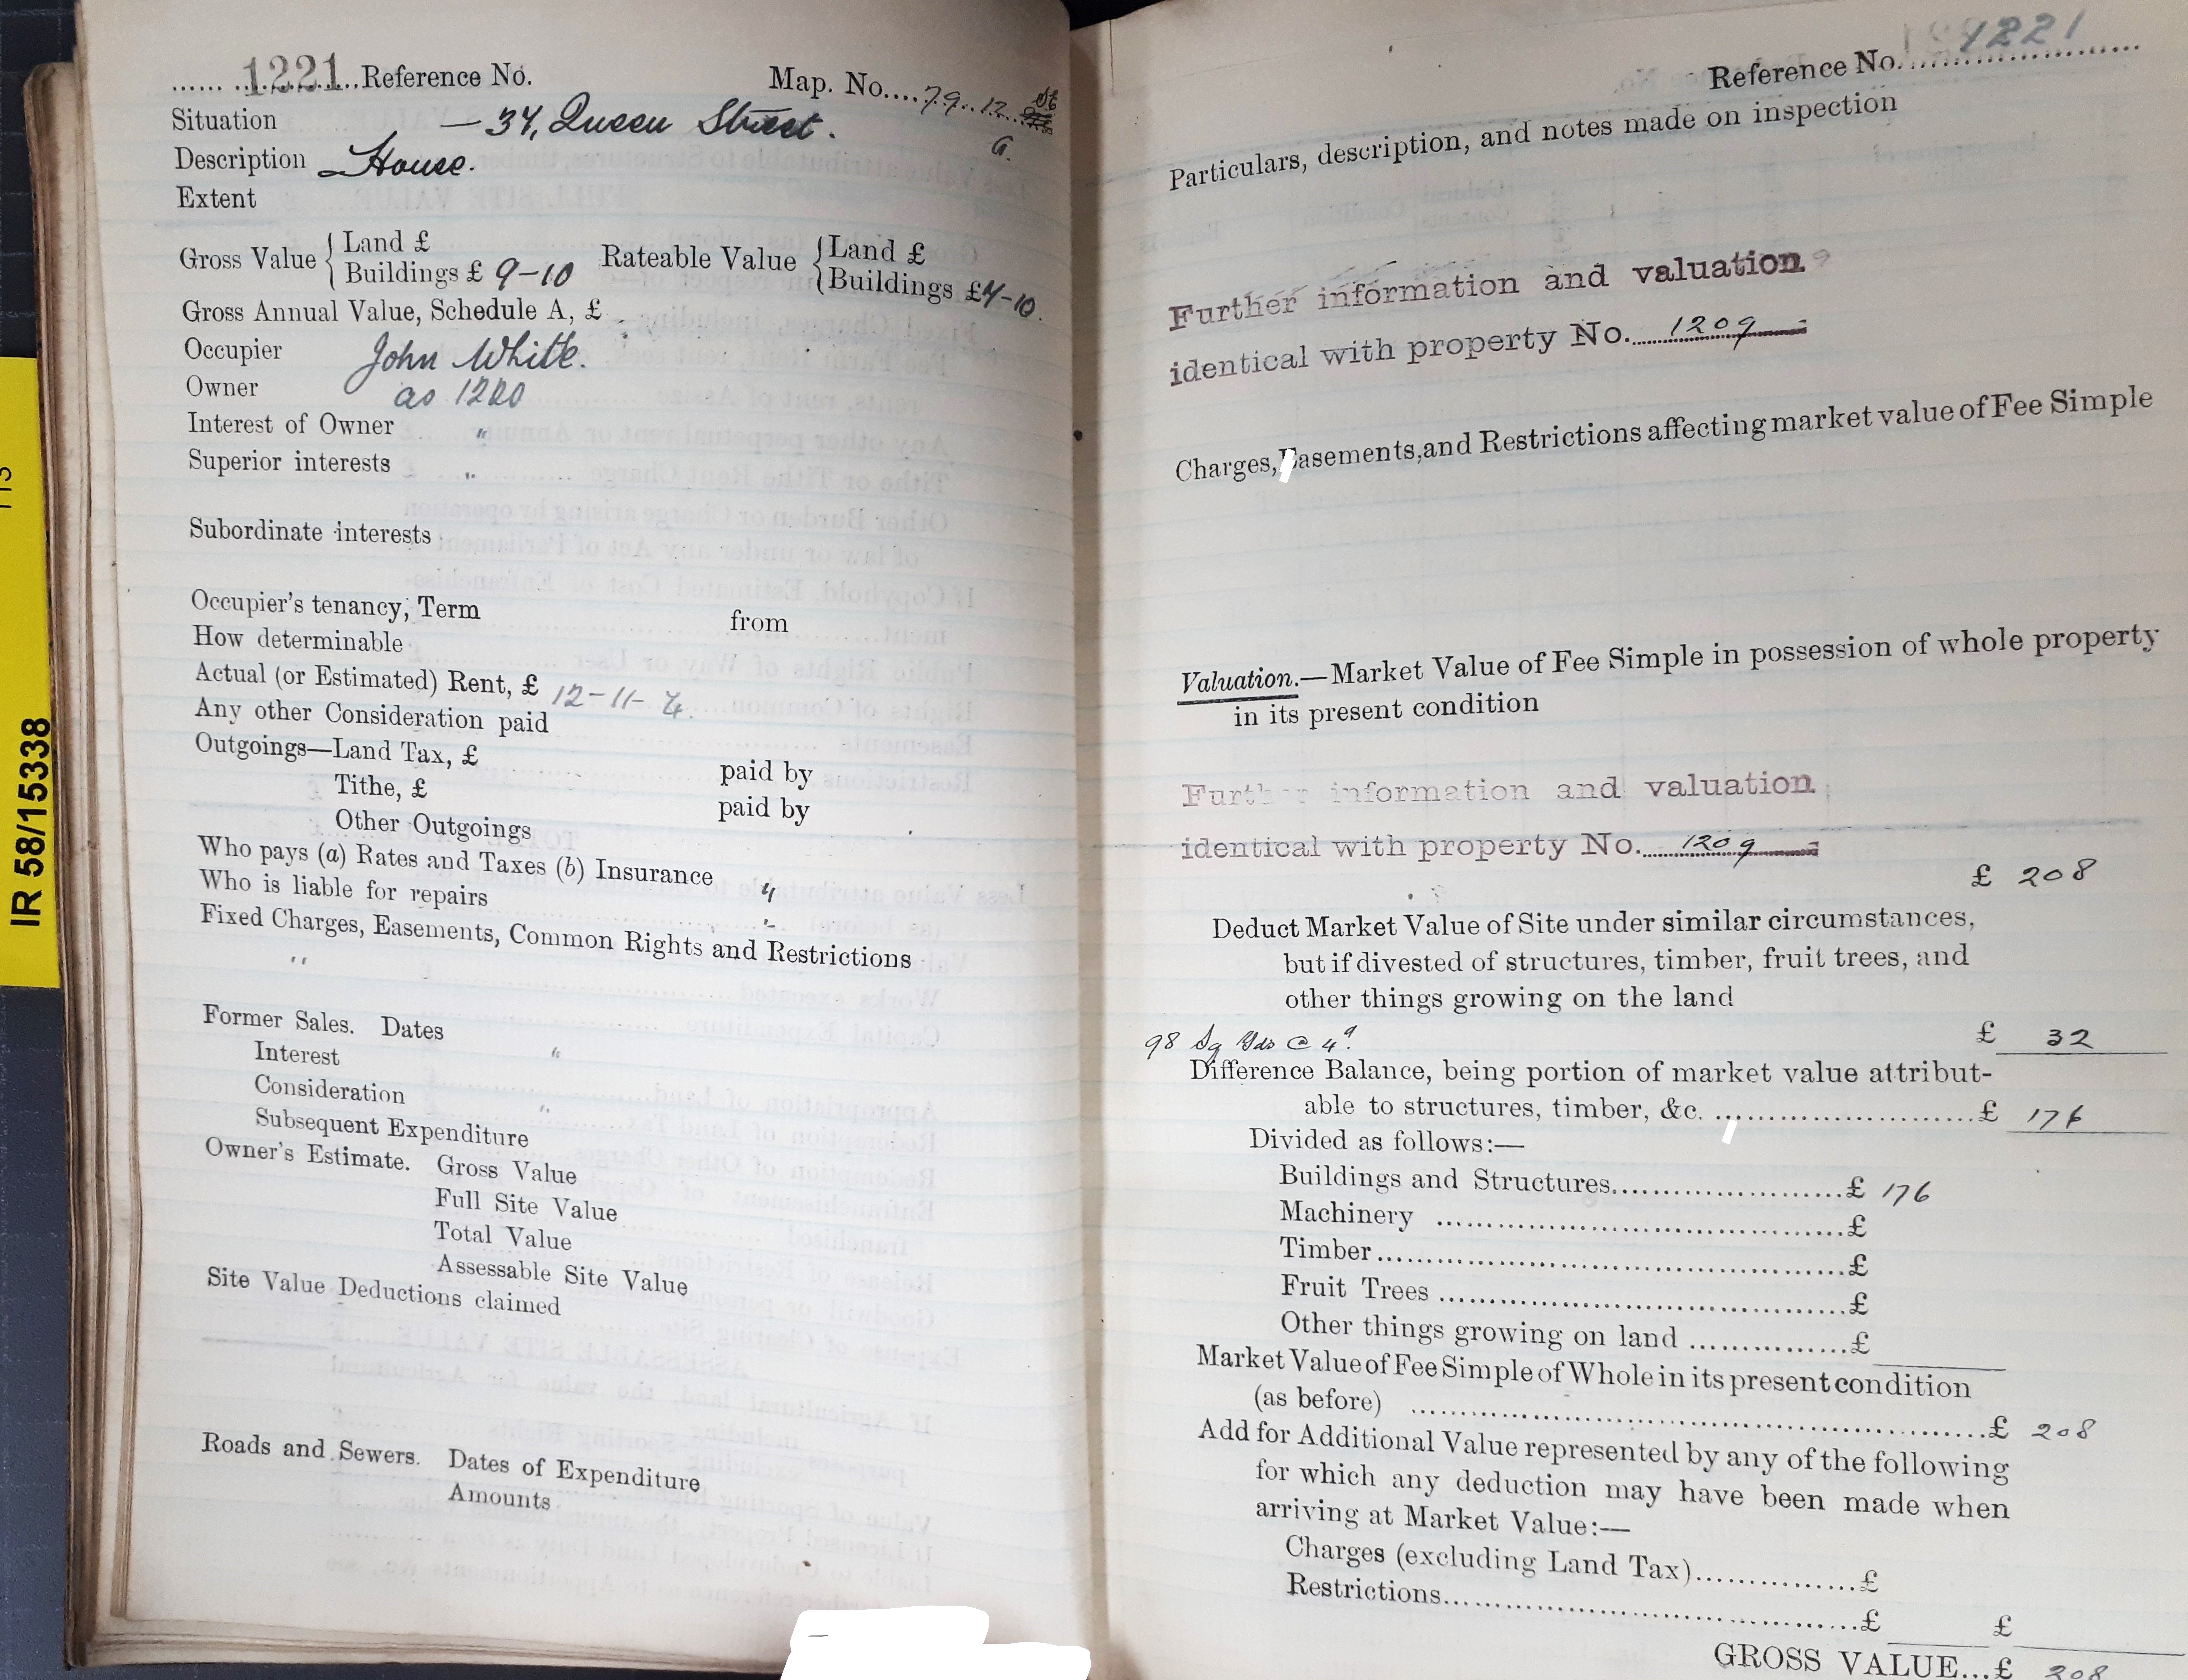 1221 Reference No. Map. No. 79. 12. St
Situation — 34, Queen Street. G.
Description House.
Extent
Gross Value { Land £
Buildings £ 9-10
Rateable Value { Land £
Buildings £ 4-10.
Gross Annual Value, Schedule A, £
Occupier John White.
Owner as 1220
Interest of Owner "
Superior interests "
Subordinate interests
Occupier's tenancy, Term from
How determinable
Actual (or Estimated) Rent, £ 12-11-4.
Any other Consideration paid
Outgoings—Land Tax, £ paid by
Tithe, £ paid by
Other Outgoings
Who pays (a) Rates and Taxes (b) Insurance "
Who is liable for repairs "
Fixed Charges, Easements, Common Rights and Restrictions
"
Former Sales. Dates
Interest "
Consideration
Subsequent Expenditure "
Owner's Estimate. Gross Value
Full Site Value
Total Value
Assessable Site Value
Site Value Deductions claimed
Roads and Sewers. Dates of Expenditure
Amounts
IR 58/15338
Reference No. 1221
Particulars, description, and notes made on inspection
Further information and valuation
identical with property No. 1209
Charges, Easements, and Restrictions affecting market value of Fee Simple
Valuation.—Market Value of Fee Simple in possession of whole property
in its present condition
Further information and valuation
identical with property No. 1209
£ 208
Deduct Market Value of Site under similar circumstances,
but if divested of structures, timber, fruit trees, and
other things growing on the land
98 Sq Yds @ £ 32
Difference Balance, being portion of market value attribut-
able to structures, timber, &c. £ 176
Divided as follows:—
Buildings and Structures £ 176
Machinery £
Timber £
Fruit Trees £
Other things growing on land £
Market Value of Fee Simple of Whole in its present condition
(as before) £ 208
Add for Additional Value represented by any of the following
for which any deduction may have been made when
arriving at Market Value:—
Charges (excluding Land Tax) £
Restrictions £ £
GROSS VALUE...£ 208